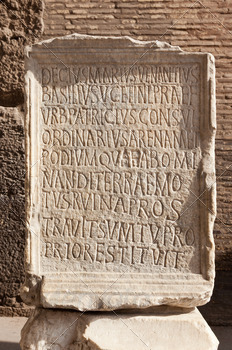 DECIVSMARIVSVENANTIVS
BASILIVSVCETINLPRAEF
VRBPATRICIVSCONS
ORDINARIVSARENAMET
PODIVMQVAEABOMI
NANDITERRAEMO
TVSRVINAPROS
TRAVITSVMTVPRO
PRIORESTITVIT